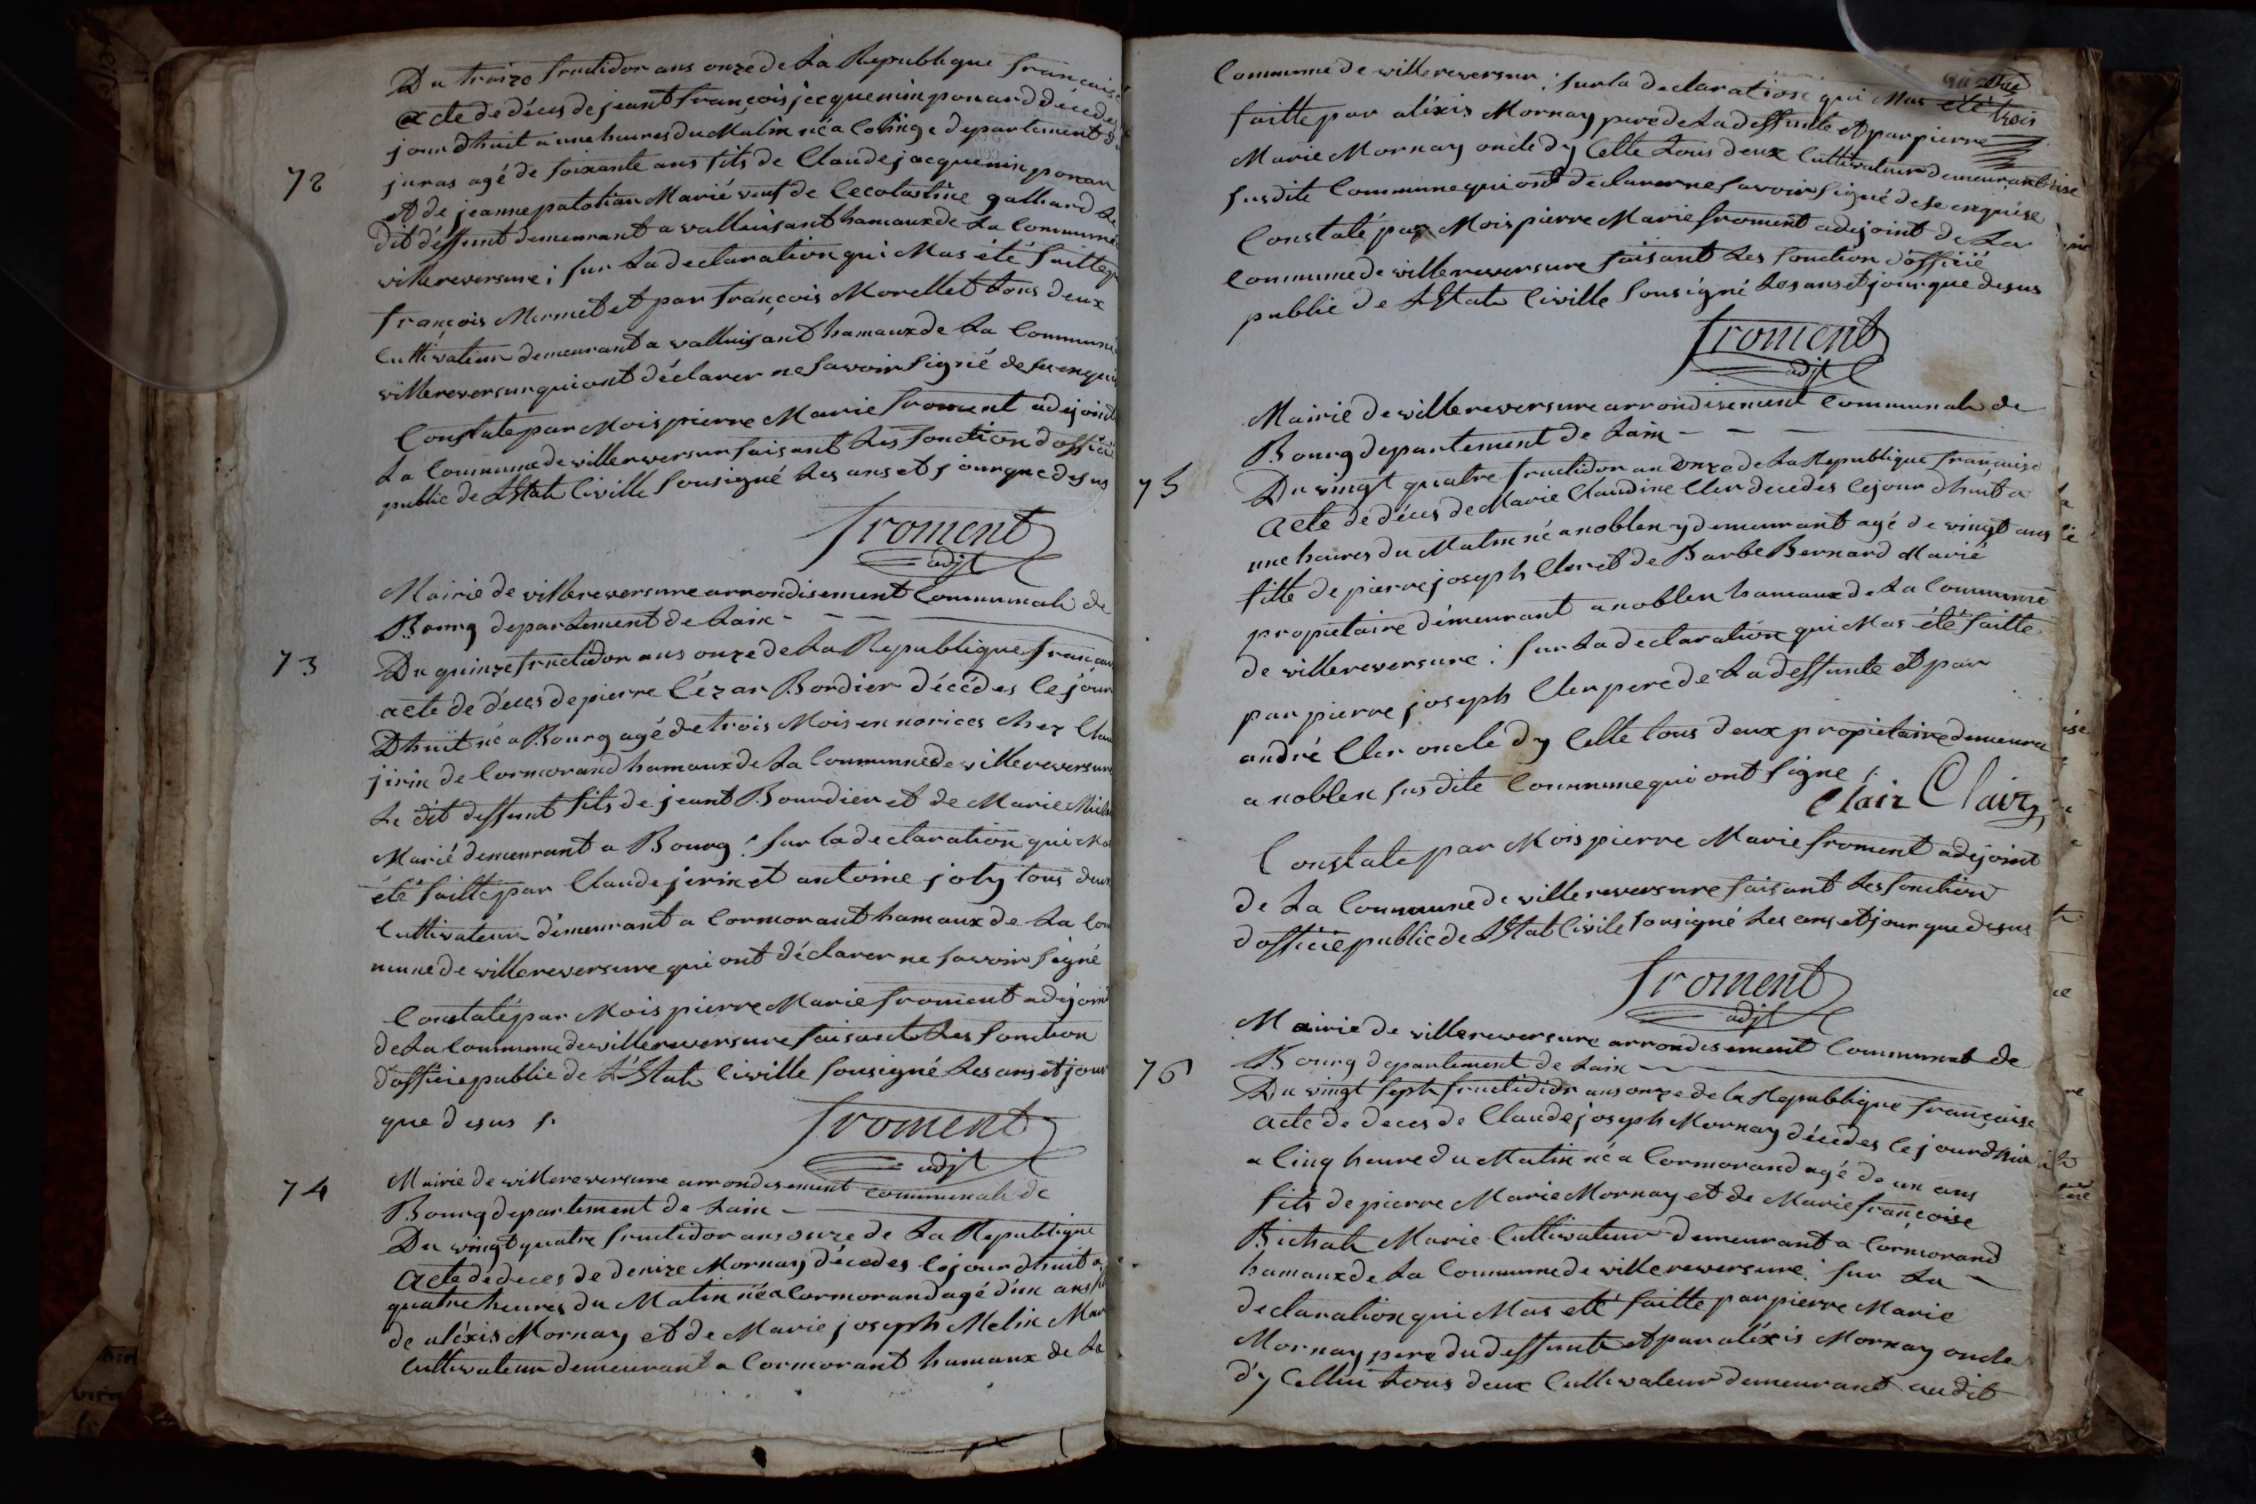 Du treize fructidor ans onze de La Republique française
acte de déces de jeant françois jacquenin ponard décedes
jour dhuit a une heures du Matin né a Coling e departement du
72
juras agé de soixante ans fils de Claude jacquenin ponar
et de jeanne patotian Marié veuf de Cecolastine galliard Le
dit déffunt demeurant a valluisant hamaux de La Commune
villereversure ; sur La declaration qui Mas été faitte p
françois Mermet et par françois Morellet tous deux
Cultivateur demeurant a valluisant hamaux de La Commune
villereversur qui ont déclarer ne savoir signé de se enquis
Constate par Mois pierre Marie froment adejoint
La Commune de villereversur faisant Les fonction d'officié
public de LEtat Civille sousigné Les ans et jour que desus
froment
adjt
Mairie de villereversure arrondisement Communale de
Bourg departement de Lain -
73
Du quinze fructidor ans onze de La Republique français
acte de déces de pierre Cézar Bordier décédes le jour
Dhuit né a Bourg agé de trois Mois en norices chez Clau
jirin de Cormorand hamaux de La Commune de villereversure
Le dit deffunt fils de jeant Bourdier et de Marie Mich
Marié demeurant a Bourg : sur la declaration qui Ma
été faitte par Claude jirin et antoine joly tous deux
Cultivateur démeurant a Cormorant hamaux de La Com
mune de villereversure qui ont déclarer ne savoir signé
Constaté par Mois pierre Marie froment adejoint
de La Commune de villereversure faisant Les fonction
d'officie public de L'Etat Civille sousigné Les ans et jour
que desus s.
froment
adjt
74
Mairie de villereversure arrondisement Communale de
Bourg departement de Lain -
Du vingt quatre fructidor ans onze de La Republique
Acte de deces de denize Mornay décedes lejour dhuit a
quatre heures du Matin né a Cormorand agé d'un ans fil
de aléxis Mornay et de Marie joseph Melin Mar
Cultivateur demeurant a Cormorant hamaux de La
Commune de villereversur : sur la declaration qui Mas été
trois
faitte par aléxis Mornay pere de La deffunte et par pierre
Marie Mornay oncle d'y Celle tous deux Cultivateur demeurant
susdite Commune qui ont declarer ne savoir signé de se enquise
Constaté par Mois pierre Marie froment adejoint de La
Commune de villereversure faisant Les fonction d'officié
public de LEtat Civille sousigné Les ans et jour que desus
froment
adjt
Mairie de villereversure arrondisement Communale de
Bourg departement de Lain -
75
Du vingt quatre fructidor an onze de La Republique française
acte de déces de Marie Claudine Cler decedes lejour dhuit a
une heures du Matin né a noblen y demeurant agé de vingt ans
fille de pierre joseph Cler et de Barbe Bernard Marié
propietaire démeurant a noblen hamaux de La Commune
de villereversure : sur La declaration qui Mas été faitte
par pierre joseph Cler pere de La deffunte et par
andré Cler oncle d'y Celle tous deux propietaire demeura
a noblen susdite Commune qui ont signe s.
Clair Clair
Constate par Mois pierre Marie froment adejoint
de La Commune de villereversure faisant Les fonction
d'officié public de LEtat Civile sousigné Les ans et jour que desus
froment
adjt
Mairie de villereversure arrondisement Communale de
Bourg departement de Lain -
76
Du vingt sept fructidor ans onze de la Republique française
acte de deces de Claude joseph Mornay décédes le jourdhui
a Cinq heure du Matin né a Cormorand agé de un ans
fils de pierre Marie Mornay et de Marie françoise
Bichat Marie Cultivateur demeurant a Cormorand
hamaux de La Commune de villereversure : sur La
declaration qui Mas eté faitte par pierre Marie
Mornay pere du deffunte et par aléxis Mornay oncle
d'y Celluì tous deux Cultivateur demeurant audit